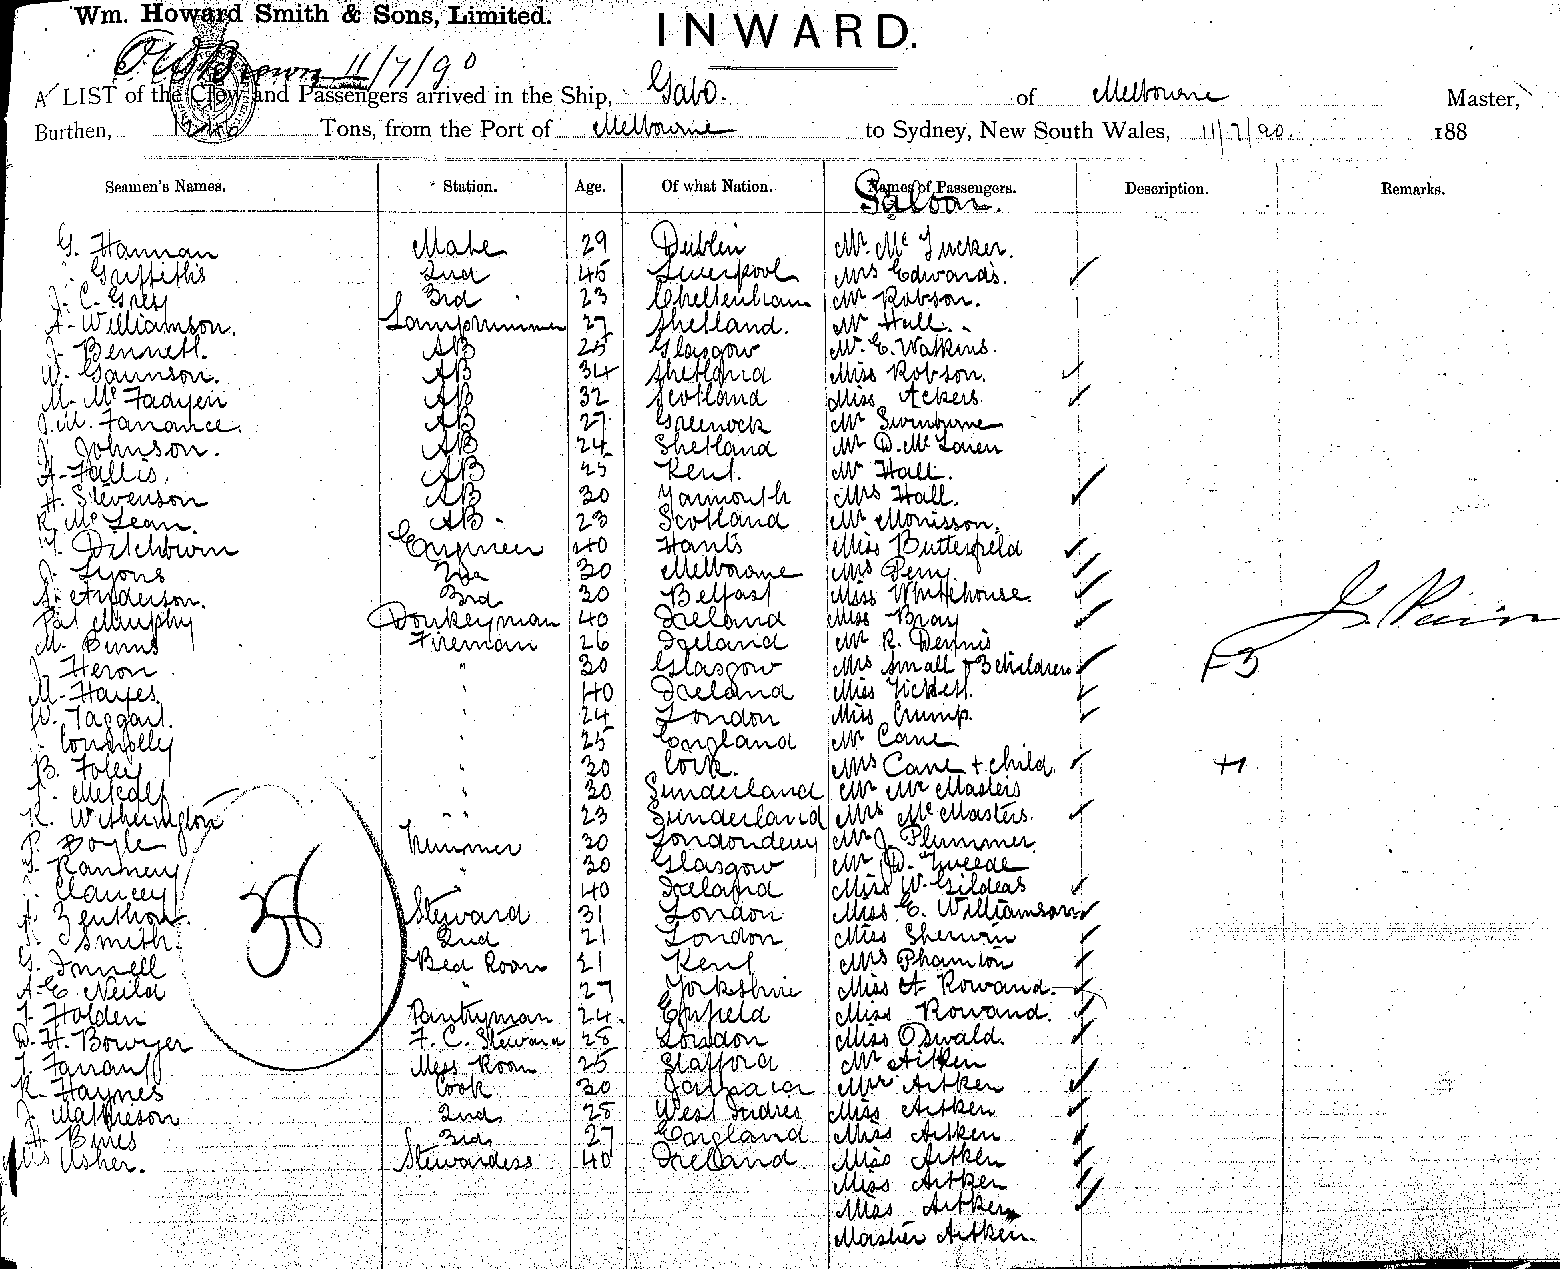 Wm. Howard Smith & Sons, Limited.
INWARD.
11/7/90
A LIST of the Crew and Passengers arrived in the Ship, Gabo. of Melbourne Master,
Burthen, Tons, from the Port of Melbourne to Sydney, New South Wales, 11/7/90. 188
Seamen's Names. Station. Age. Of what Nation. Names of Passengers. Description. Remarks.
Saloon.
G. Hannan Mate 29 Dublin Mr. Mc Tucker.
Griffiths 2nd 45 Liverpool Mrs Edwards.
J. C. Grey 3rd 23 Cheltenham Mr Robson.
A. Williamson. Lamptrimmer 27 Shetland. Mr Hall.
J. Bennett. AB 25 Glasgow Mr. E. Watkins.
W. Gaunson. AB 34 Shetland Miss Robson.
M. Mc Fadyen AB 32 Scotland Miss Ackers.
J. M. Farrance. AB 27 Greenock Mr Swinburne
J. Johnson. AB 24 Shetland Mr D. McLaren
A. Fallis. AB 25 Kent. Mr Hall.
H. Stevenson AB 30 Yarmouth Mrs Hall.
R. McLean. AB. 23 Scotland Mr Morrisson.
Ditchburn Engineer 40 Hants Miss Butterfield
J. Lyons 2nd 30 Melbourne Mrs Perry
S. Anderson. 3rd 30 Belfast Miss Whitehouse.
Pat Murphy Donkeyman 40 Ireland Miss Bray
M. Burns Fireman 26 Ireland Mr R. Dennis
J. Heron " 30 Glasgow Mrs Small + 3 children +3
M. Hayes. " 40 Ireland Miss Tickell.
W. Taggart. " 24 London Miss Crump.
Connolly " 25 England Mr Cane
B. Foley " 30 Cork. Mrs Cane + child. +1
Metcalf " 30 Sunderland Mr McMasters
R. Witherington " " 23 Sunderland Mrs McMasters.
P. Boyle Trimmer 30 Londonderry Mr J. Plummer.
Ranney " 30 Glasgow Mr D. Tweede
Clancey " 40 Ireland Miss W. Gildeas
A. Benthon Steward 31 London Miss E. Williamson
Smith. 2nd 21 London Miss Sherwin
38
G. Innell Bed Room 21 Kent Mrs Phanton
A. E. Neild " 27 Yorkshire Miss A Rowand.
J. Holden Pantryman 24. Enfield Miss Rowand.
D. H. Bowyer F. C. Steward 28 London Miss Oswald.
J. Farrant Mess Room 25 Stafford Mr Aitken
R. Haynes Cook 30 Jamaica Mrs Aitken
J. Matheson 2nd 28 West Indies Miss Aitken
A. Bines 3rd 27 England Miss Aitken
Mrs Usher. Stewardess 40 Ireland Miss Aitken
Miss Aitken
Miss Aitken
Master Aitken.